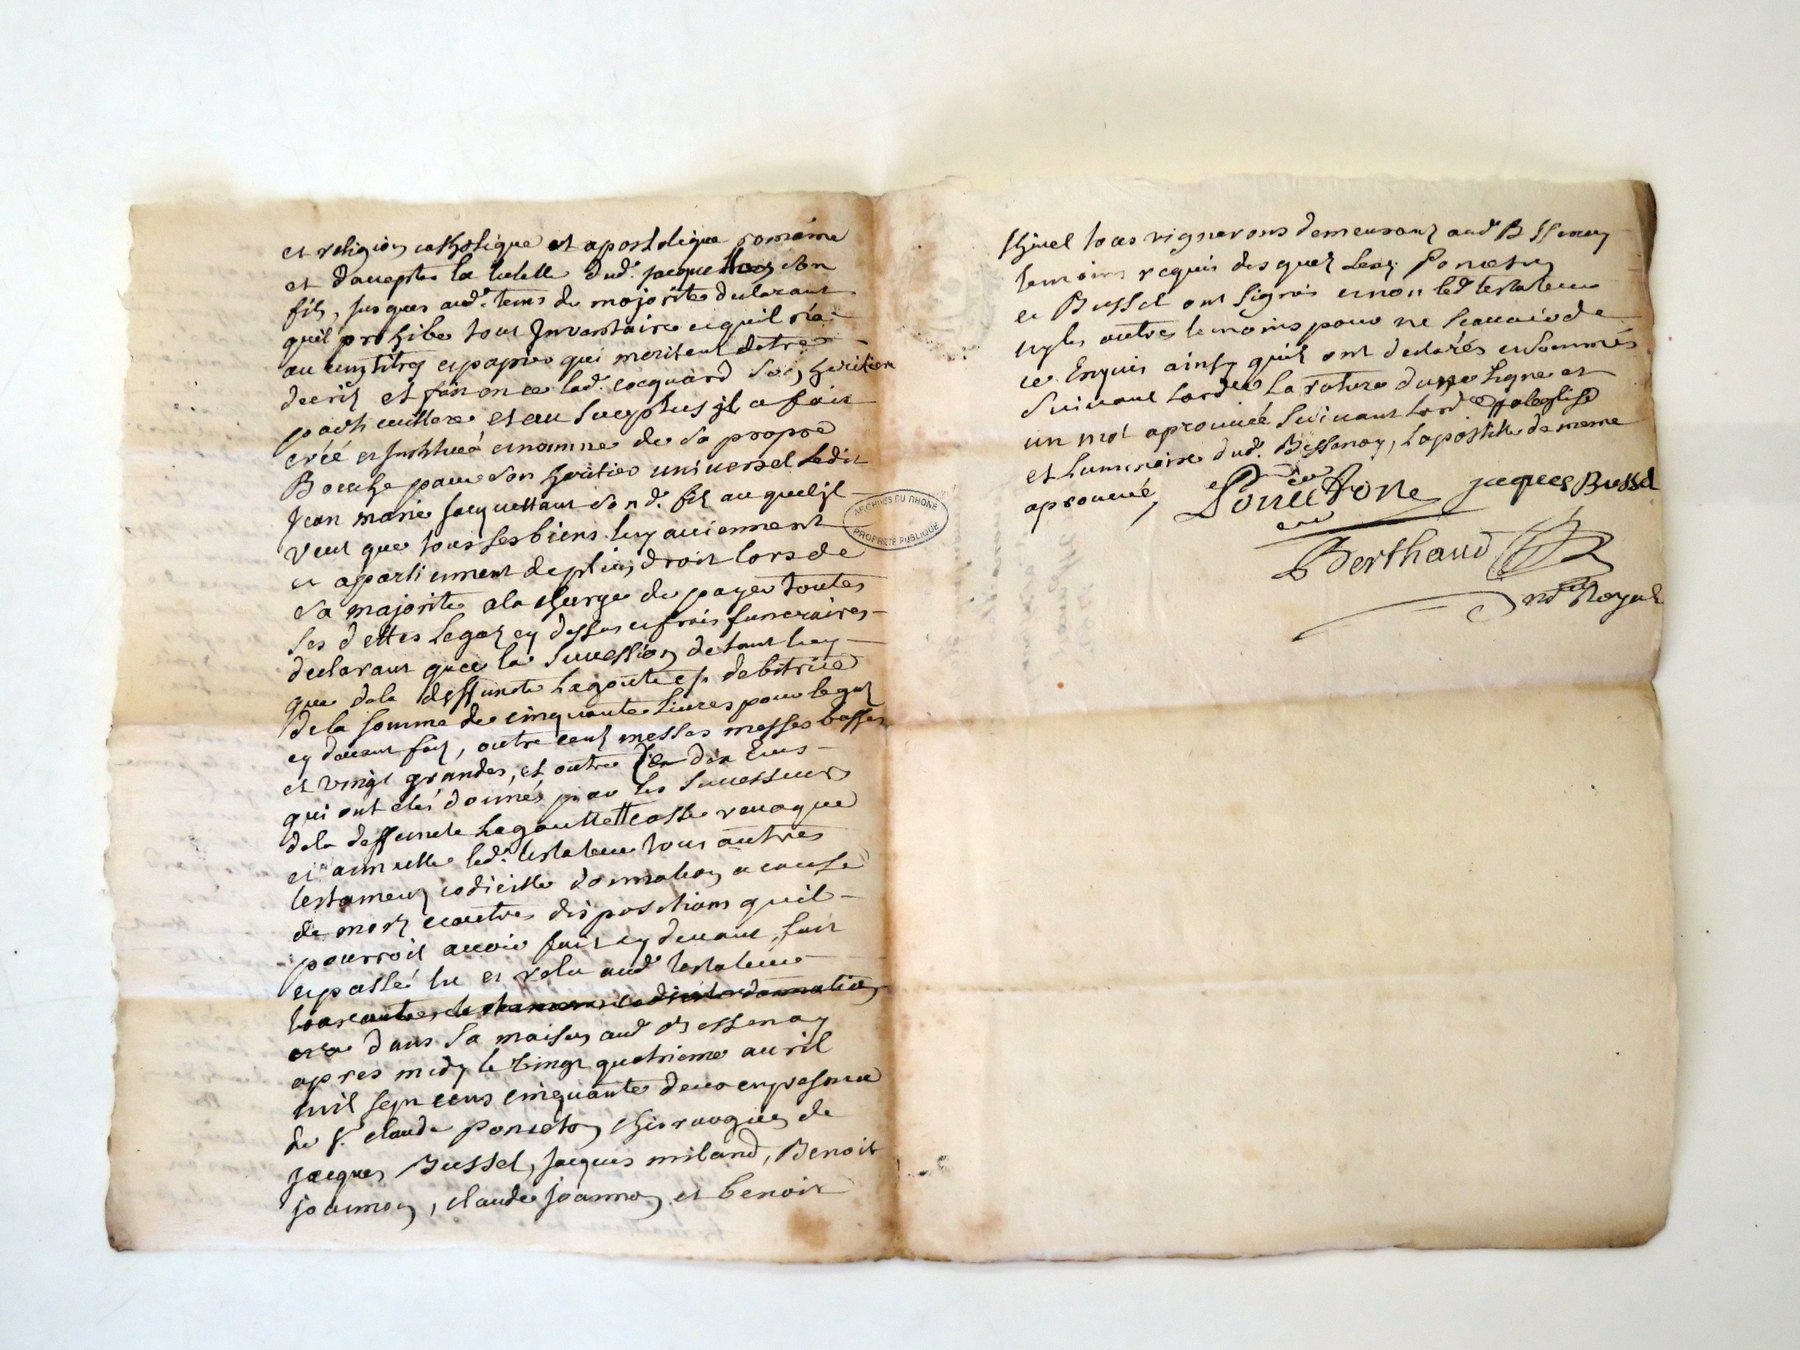 et religion catholique et apostolique romaine
et daccepter la tutelle dud. jacquettant son
fils, jusques aud. tems de majorité declarant
quil prohibe tout Inventaire et quil n'a
aucuns titres et papiers qui meritent detre
decrit et fait en ce lad. cocquard son heritiere
particuliere et au surplus il a fait
créé et institué et nommé de sa propre
Bouche pour son heritier universel ledit
Jean marie Jacquettant sond. fils auquel il
veut que tous ses biens luy aviennent
et apartiennent de plein droit lors de
sa majorité a la charge de payer toutes
ses dettes legaz cy dessus et frais funeraires
declarant que la succession de tant luy
que de la deffuncte Lagoutte est debitrice
de la somme de cinquante livres pour legaz
cy devant fait, outre cent messes messes basses
et vingt grandes, et outre dix Ecus
qui ont etés donnés par les successeurs
de la deffuncte Lagoutte casse revoque
et annulle led. testateur tous autres
testament codicille donnation a cause
de mort et autres dispositions quil
pourroit avoir fait cy devant, fait
et passé lu et relu aud. testateur
tous autres testamens codicile donnation
dans sa maison aud. Bessenay
apres midy le vingt quatrieme avril
mil sept cens cinquante deux en presence
de Sr. claude ponceton chirurgien de
Jacques Bussel, jacques miland, Benoit
joannon, claude joannon et benoit
thivel tous vignerons demeurant aud. Bessenay
temoins requis desquels led. Ponceton
et Bussel ont signés et non led. testateur
ny les autres temoins pour ne scavoir de
ce Enquis ainsy quils ont declarés et sommés
suivant lord. la rature dune ligne et
un mot aprouvée suivant lord. eglise
et luminaire dud. Bessenay, lapostille de meme
aprouvé,
Poncetone jacques Bussel
Berthaud
not. Royal
ARCHIVES DU RHONE
PROPRIETE PUBLIQUE